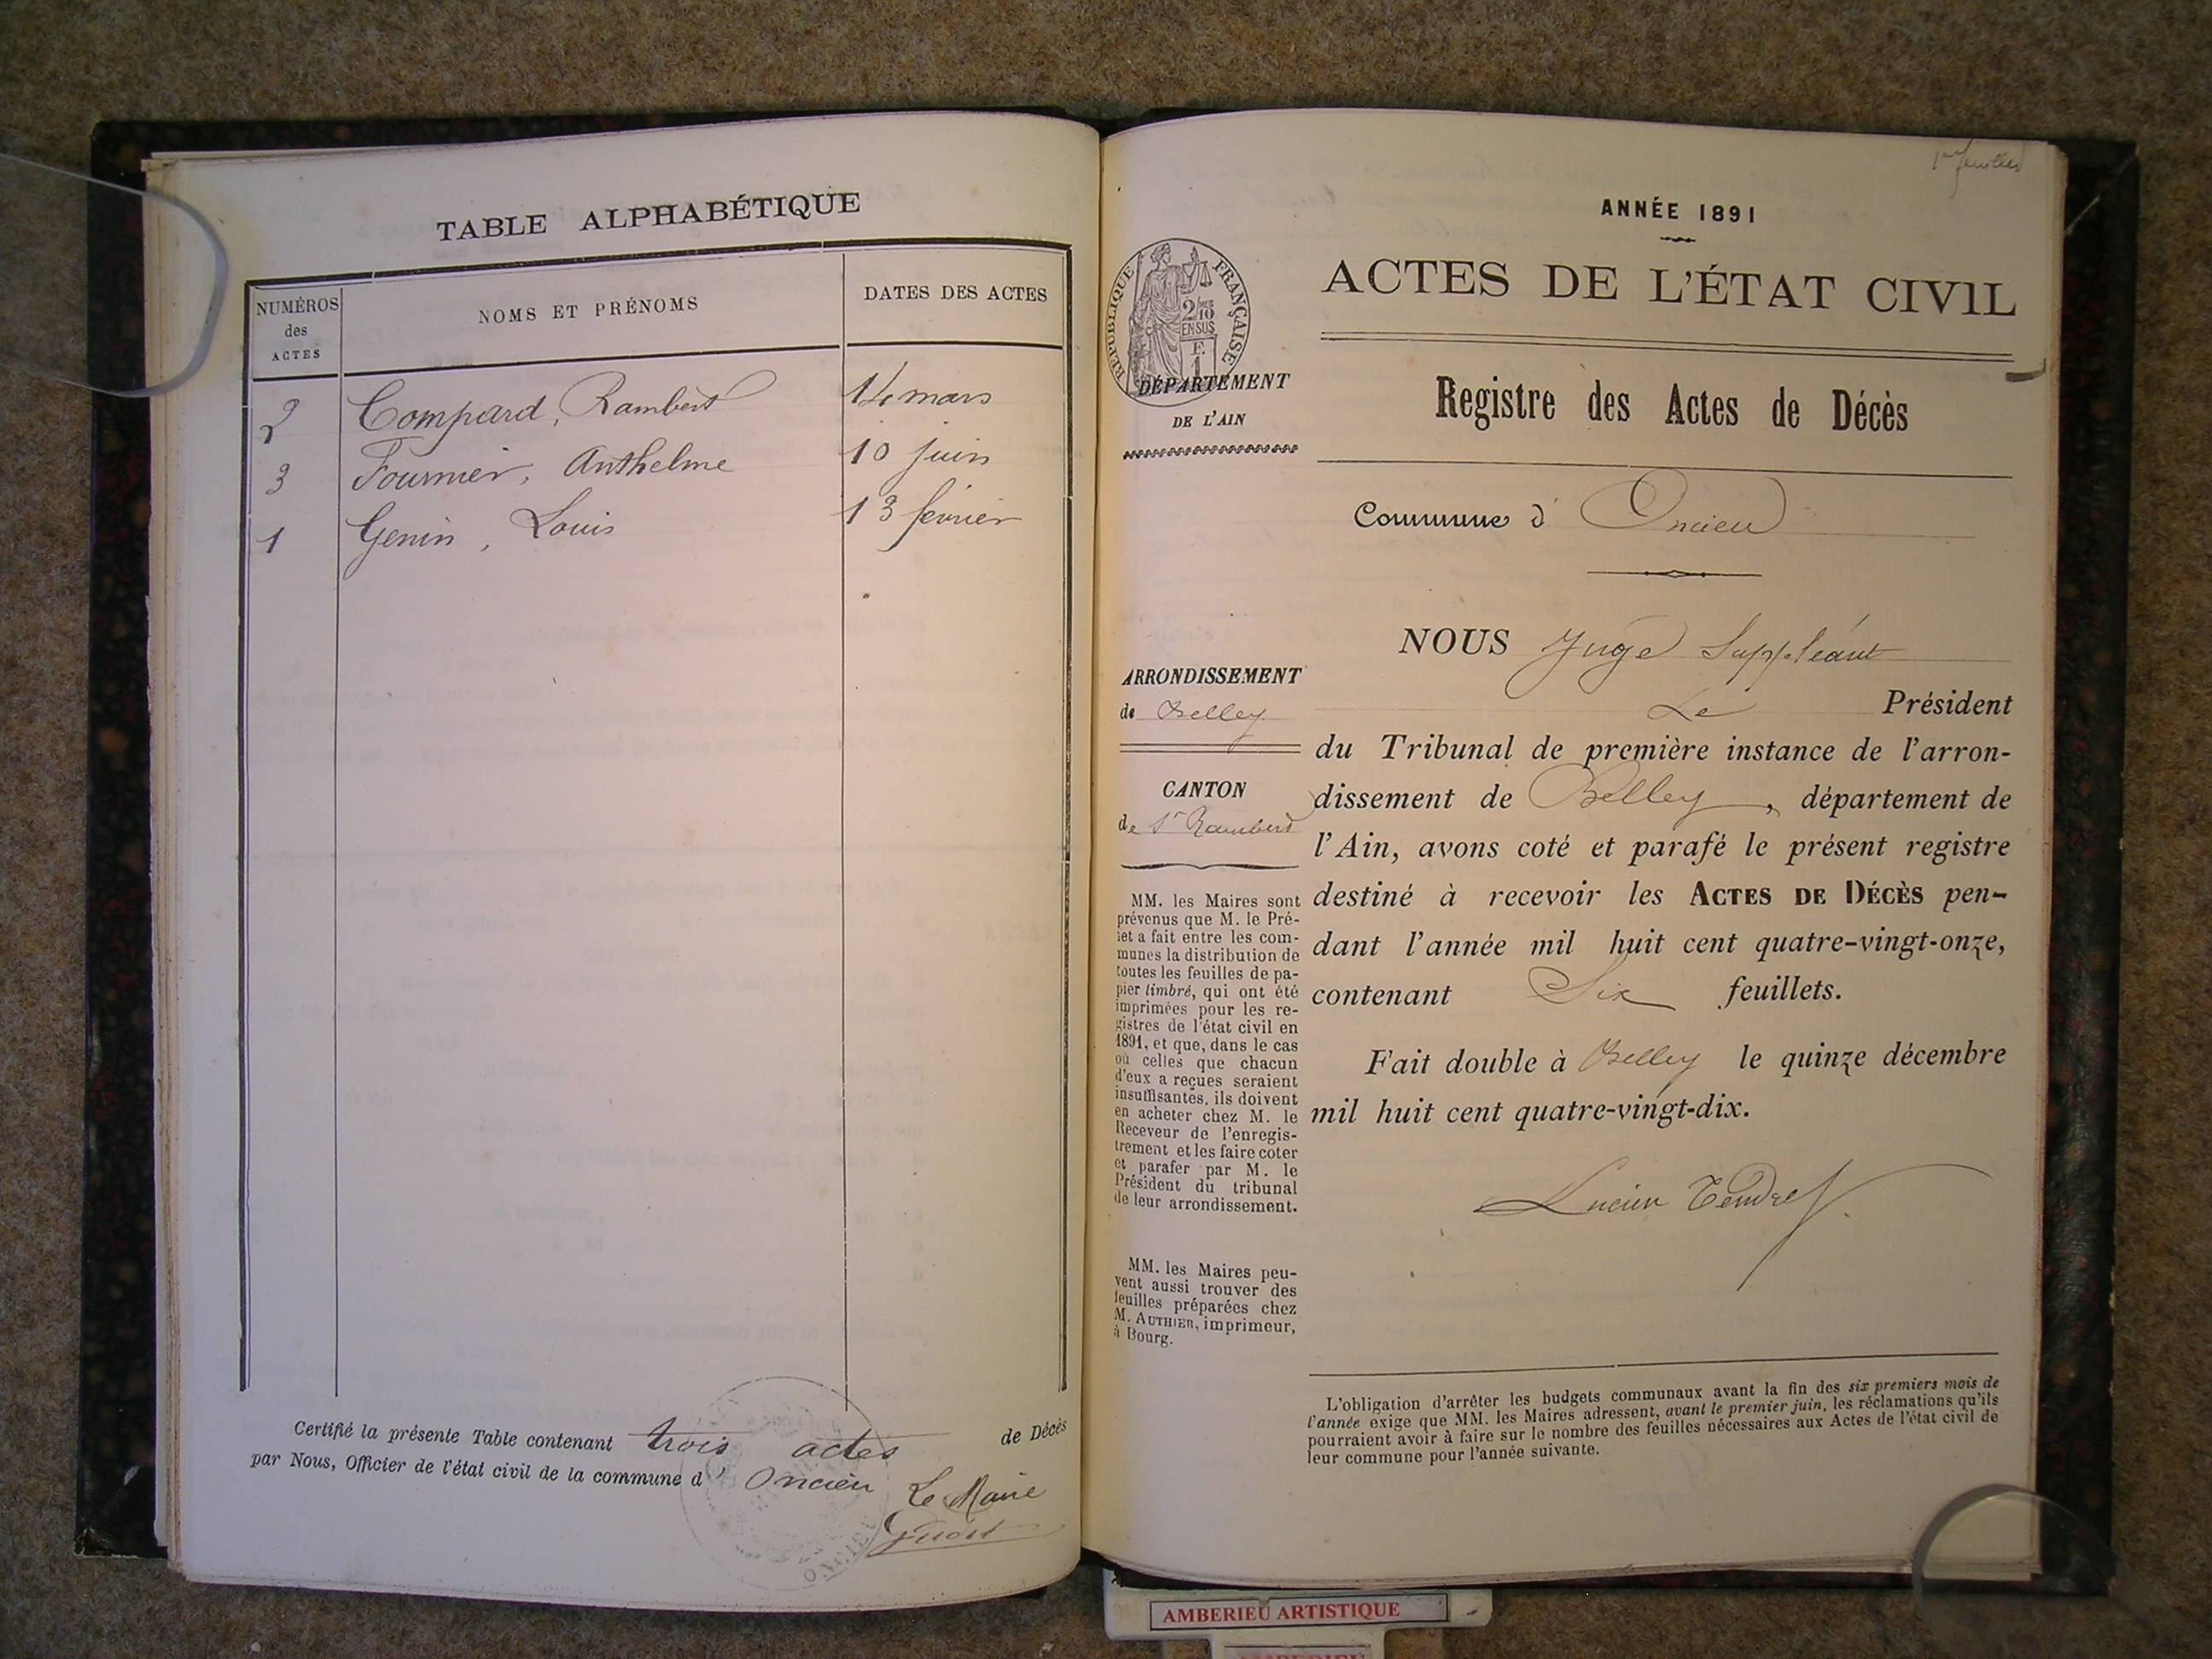 TABLE ALPHABÉTIQUE
NUMÉROS des ACTES
NOMS ET PRÉNOMS
DATES DES ACTES
2 Compard, Rambert 14 mars
3 Fournier, Anthelme 10 juin
1 Genin, Louis 13 février
Certifié la présente Table contenant trois actes de Décès
par Nous, Officier de l'état civil de la commune d' Oncieu Le Maire
ONCIEU
ANNÉE 1891
ACTES DE L'ÉTAT CIVIL
RÉPUBLIQUE FRANÇAISE
2/10
EN SUS
F. 1
DÉPARTEMENT
DE L'AIN
Registre des Actes de Décès
Commune d' Oncieu
NOUS Juge Suppléant
Le Président
du Tribunal de première instance de l'arron-
dissement de Belley, département de
l'Ain, avons coté et parafé le présent registre
destiné à recevoir les ACTES DE DÉCÈS pen-
dant l'année mil huit cent quatre-vingt-onze,
contenant Six feuillets.
Fait double à Belley le quinze décembre
mil huit cent quatre-vingt-dix.
Lucien Tendret
ARRONDISSEMENT
de Belley
CANTON
de St Rambert
MM. les Maires sont
prévenus que M. le Pré-
fet a fait entre les com-
munes la distribution de
toutes les feuilles de pa-
pier timbré, qui ont été
imprimées pour les re-
gistres de l'état civil en
1891, et que, dans le cas
où celles que chacun
d'eux a reçues seraient
insuffisantes, ils doivent
en acheter chez M. le
Receveur de l'enregis-
trement et les faire coter
et parafer par M. le
Président du tribunal
de leur arrondissement.
MM. les Maires peu-
vent aussi trouver des
feuilles préparées chez
M. AUTHIER, imprimeur,
à Bourg.
L'obligation d'arrêter les budgets communaux avant la fin des six premiers mois de
l'année exige que MM. les Maires adressent, avant le premier juin, les réclamations qu'ils
pourraient avoir à faire sur le nombre des feuilles nécessaires aux Actes de l'état civil de
leur commune pour l'année suivante.
AMBERIEU ARTISTIQUE
AMBERIEU